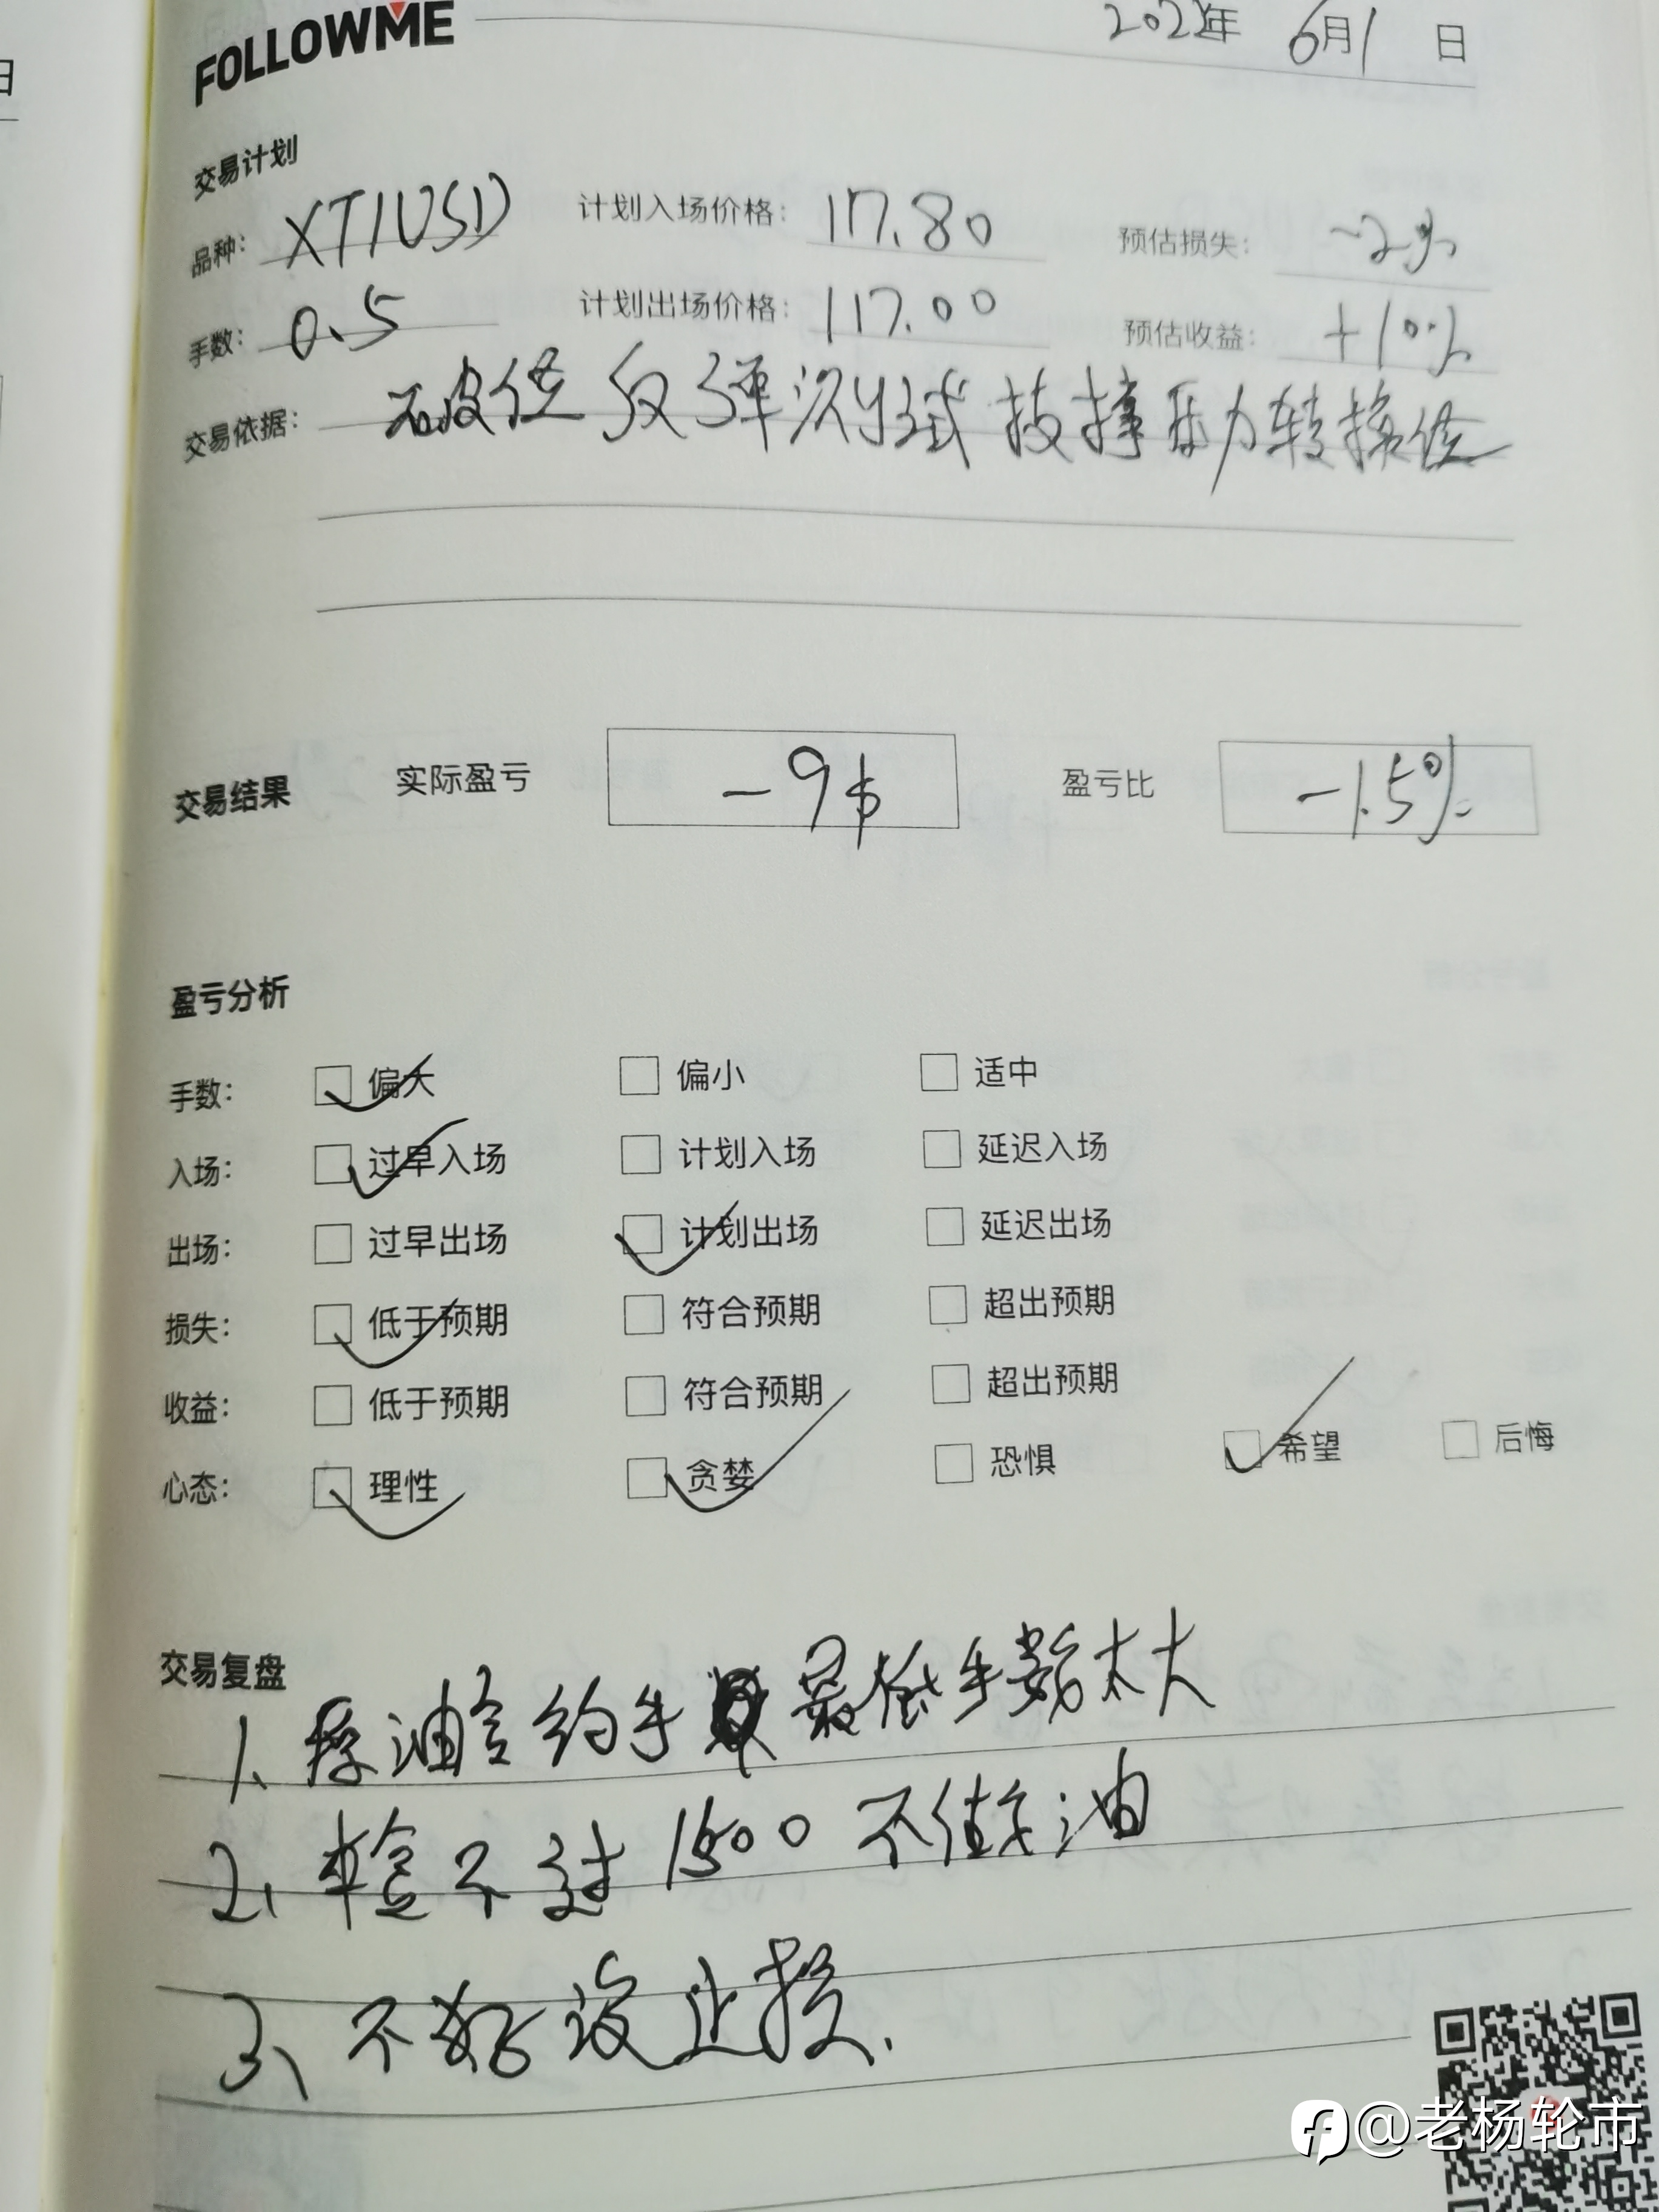 日
FOLLOWME
2022年 6月1 日
交易计划
品种: XTIUSD 计划入场价格: 117.80 预估损失: -2%
手数: 0.5 计划出场价格: 117.00 预估收益: +10%
交易依据: 破位 反弹测试 支撑压力转换位
交易结果 实际盈亏 -9$ 盈亏比 -1.5%
盈亏分析
手数: 偏大 偏小 适中
入场: 过早入场 计划入场 延迟入场
出场: 过早出场 计划出场 延迟出场
损失: 低于预期 符合预期 超出预期
收益: 低于预期 符合预期 超出预期
心态: 理性 贪婪 恐惧 希望 后悔
交易复盘
1、原油合约手 最低手数太大
2、本金不过1500 不做原油
3、不好设止损.
@老杨轮市